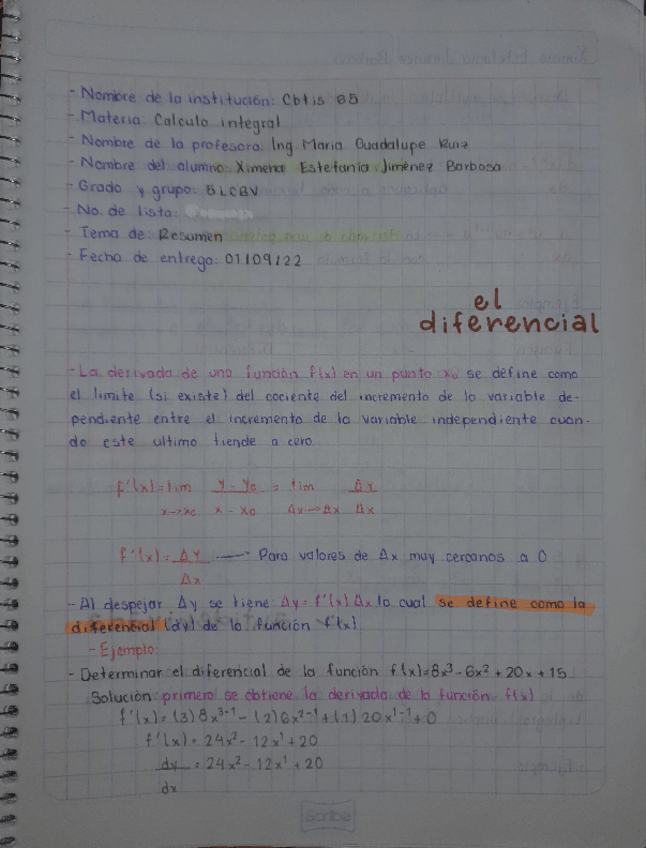 - Nombre de la institución: Cbtis 65
- Materia: Calculo integral
- Nombre de la profesora: Ing. Maria Guadalupe Ruiz
- Nombre del alumno: Ximena Estefanía Jiménez Barbosa
- Grado y grupo: 5LCBV
- No. de lista:
- Tema de: Resumen
- Fecha de entrega: 01/09/22
el
diferencial
- La derivada de una función f(x) en un punto x₀ se define como
el limite (si existe) del cociente del incremento de la variable de-
pendiente entre el incremento de la variable independiente cuan-
do este ultimo tiende a cero.
f'(x)=lim y-y₀ = lim Δx
x→x₀ x-x₀ Δx→Δx Δx
f'(x)= Δy → Para valores de Δx muy cercanos a 0
Δx
- Al despejar Δy se tiene: Δy=f'(x)Δx lo cual se define como la
diferencial (dy) de la función f'(x)
- Ejemplo:
- Determinar el diferencial de la función f(x)=8x³-6x²+20x+15
Solución: primero se obtiene la derivada de la función f(x)
f'(x)=(3)8x³⁻¹-(2)6x²⁻¹+(1)20x¹⁻¹+0
f'(x)=24x²-12x¹+20
dy = 24x²-12x¹+20
dx
scribe